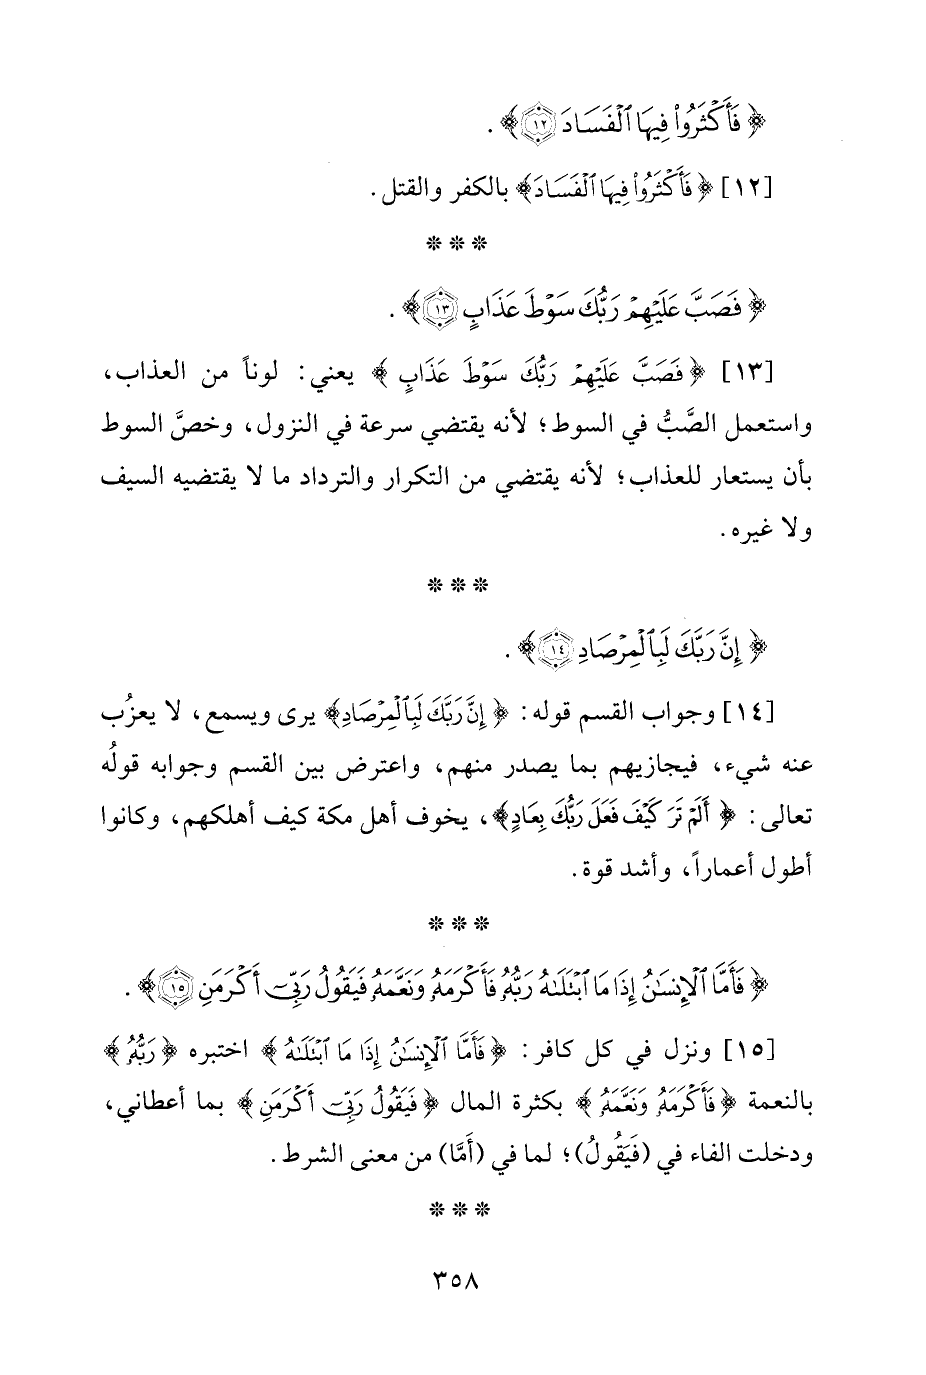 ﴿فَأَكْثَرُوا۟ فِيهَا ٱلْفَسَادَ ۝١٢﴾ .
[١٢] ﴿فَأَكْثَرُوا۟ فِيهَا ٱلْفَسَادَ﴾ بالكفر والقتل .
* * *
﴿فَصَبَّ عَلَيْهِمْ رَبُّكَ سَوْطَ عَذَابٍ ۝١٣﴾ .
[١٣] ﴿فَصَبَّ عَلَيْهِمْ رَبُّكَ سَوْطَ عَذَابٍ﴾ يعني: لوناً من العذاب،
واستعمل الصَّبُّ في السوط؛ لأنه يقتضي سرعة في النزول، وخصَّ السوط
بأن يستعار للعذاب؛ لأنه يقتضي من التكرار والترداد ما لا يقتضيه السيف
ولا غيره .
* * *
﴿إِنَّ رَبَّكَ لَبِٱلْمِرْصَادِ ۝١٤﴾ .
[١٤] وجواب القسم قوله: ﴿إِنَّ رَبَّكَ لَبِٱلْمِرْصَادِ﴾ يرى ويسمع، لا يعزُب
عنه شيء، فيجازيهم بما يصدر منهم، واعترض بين القسم وجوابه قولُه
تعالى: ﴿أَلَمْ تَرَ كَيْفَ فَعَلَ رَبُّكَ بِعَادٍ﴾، يخوف أهل مكة كيف أهلكهم، وكانوا
أطول أعماراً، وأشد قوة .
* * *
﴿فَأَمَّا ٱلْإِنسَٰنُ إِذَا مَا ٱبْتَلَىٰهُ رَبُّهُۥ فَأَكْرَمَهُۥ وَنَعَّمَهُۥ فَيَقُولُ رَبِّىٓ أَكْرَمَنِ ۝١٥﴾ .
[١٥] ونزل في كل كافر: ﴿فَأَمَّا ٱلْإِنسَٰنُ إِذَا مَا ٱبْتَلَىٰهُ﴾ اختبره ﴿رَبُّهُۥ﴾
بالنعمة ﴿فَأَكْرَمَهُۥ وَنَعَّمَهُۥ﴾ بكثرة المال ﴿فَيَقُولُ رَبِّىٓ أَكْرَمَنِ﴾ بما أعطاني،
ودخلت الفاء في (فَيَقُولُ)؛ لما في (أَمَّا) من معنى الشرط .
* * *
٣٥٨